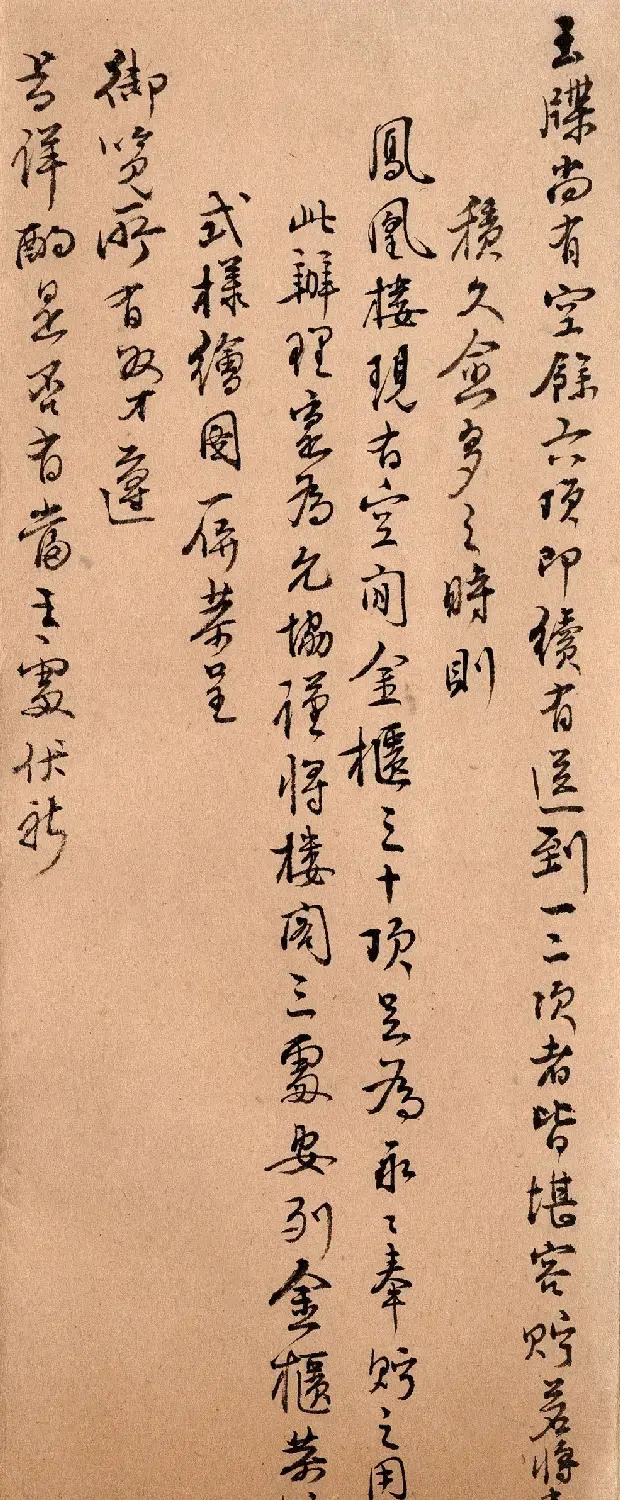 玉牒尚有空餘六頂即續有送到一二次者皆堪容貯若將
積久愈多之時則
鳳凰樓現有空閒金櫃三十頂足為永〻奉貯之用
此辦理寔為允協謹將樓閣三處安列金櫃恭
式樣繪图一併恭呈
御覽所有奴才遵
旨詳酌是否有當之處伏祈